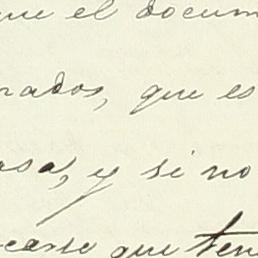 que el docum
rados, que es
asa, y si no
carse que ten